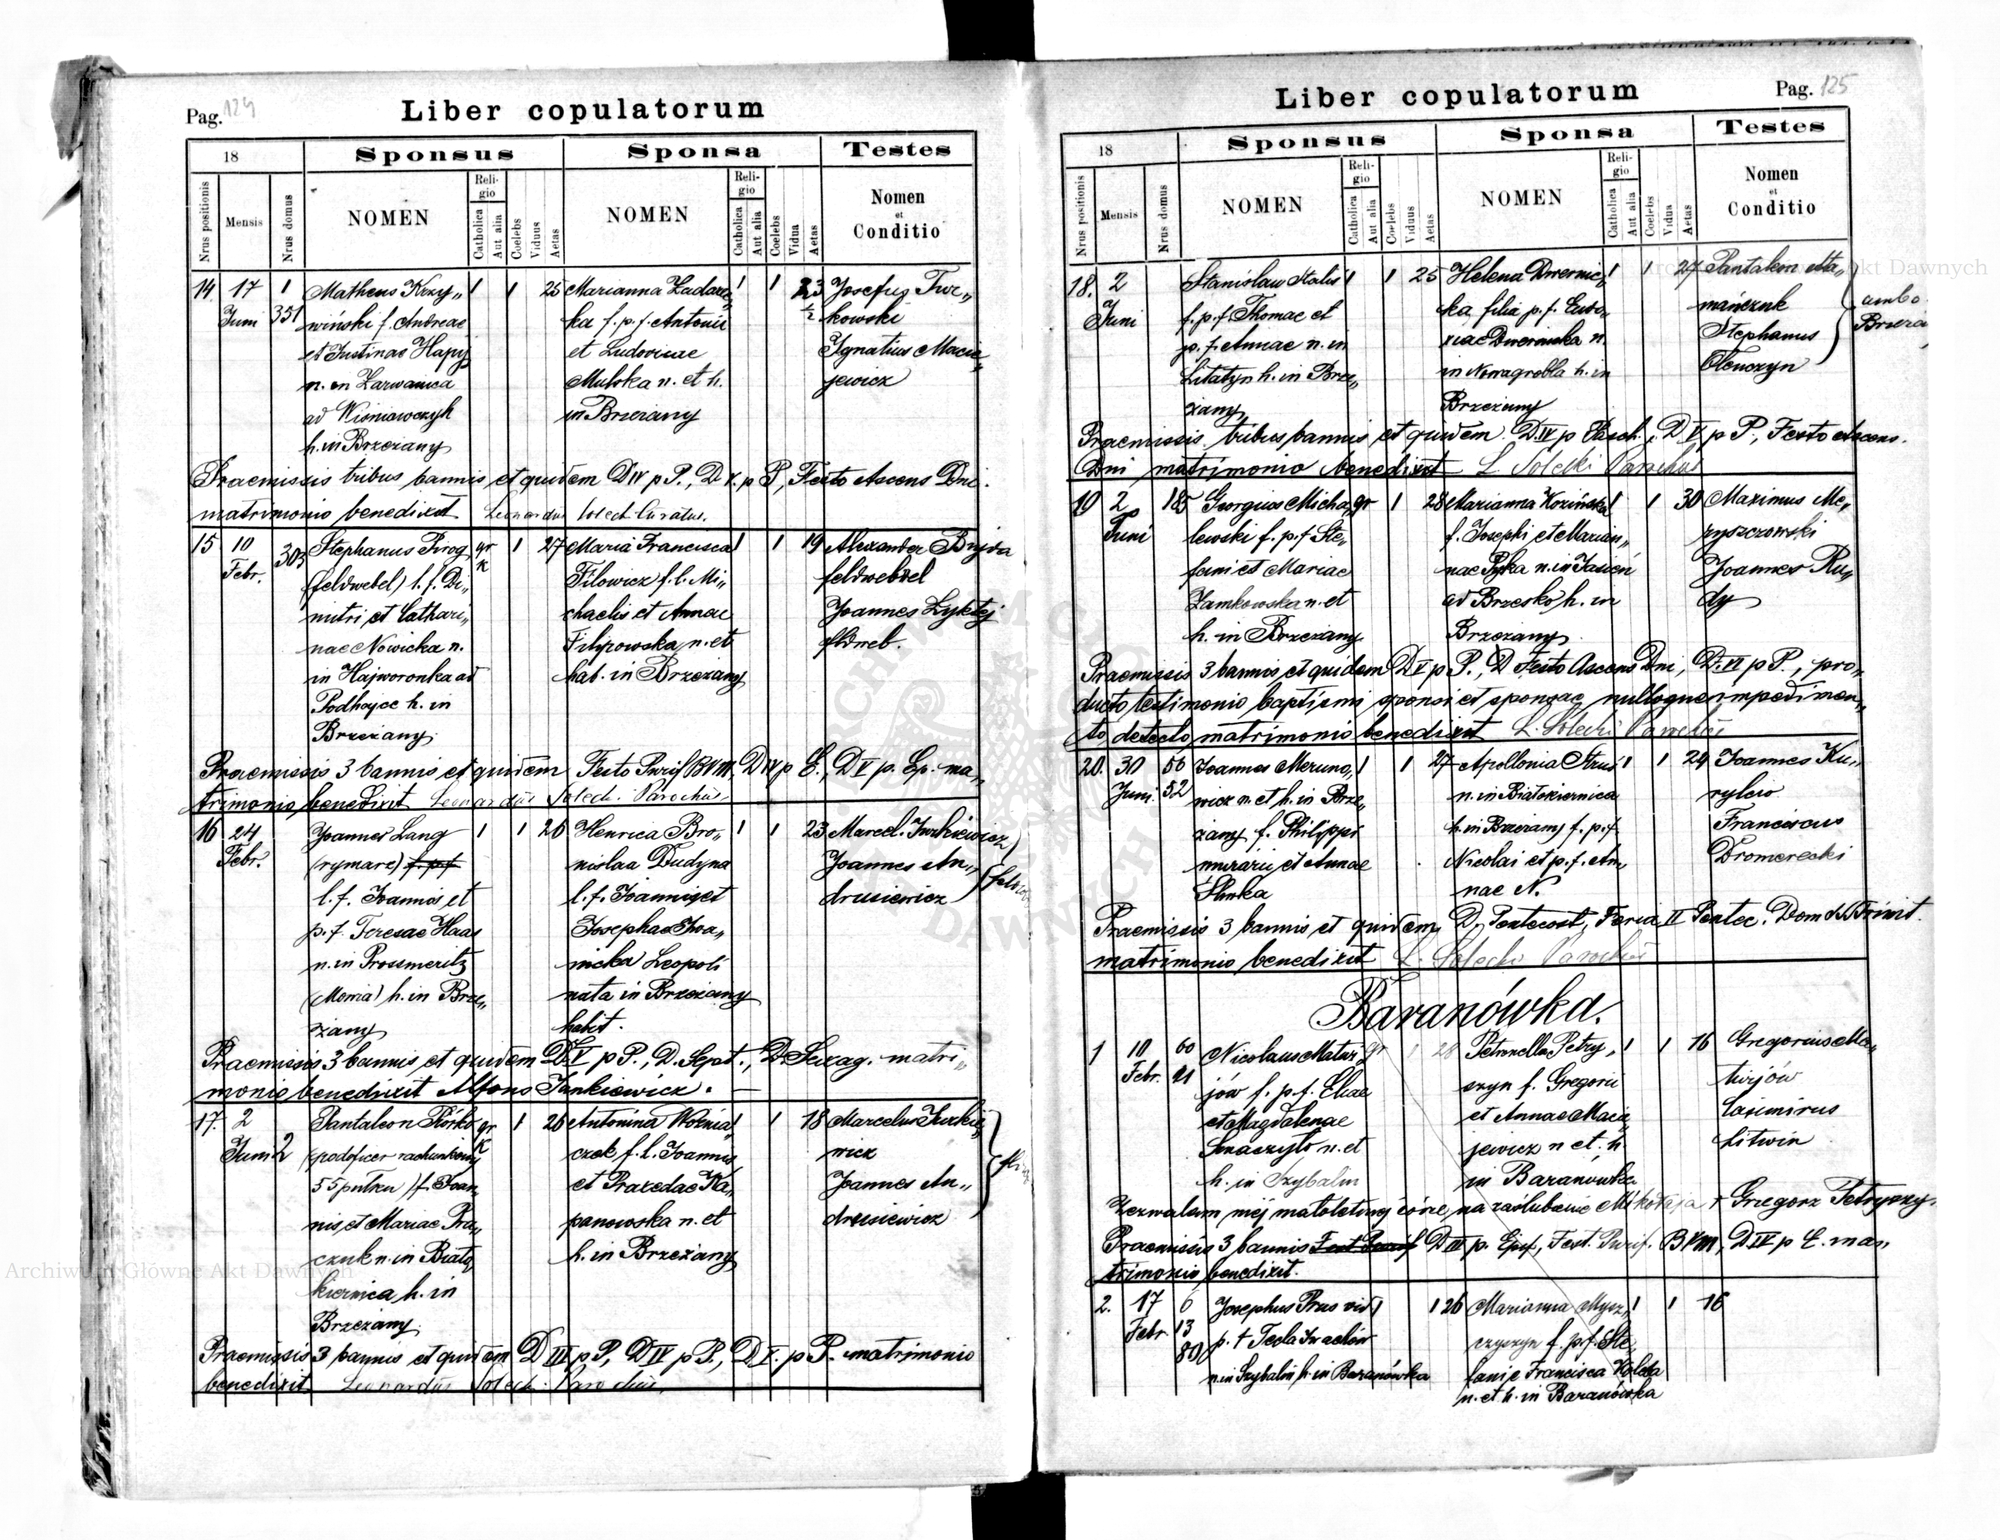 Pag. 124
Liber copulatorum
18
Sponsus
Sponsa
Testes
Nrus positionis
Mensis
Nrus domus
NOMEN
Religio
Catholica
Aut alia
Coelebs
Viduus
Aetas
NOMEN
Religio
Catholica
Aut alia
Coelebs
Vidua
Aetas
Nomen
et
Conditio
14 17 Juni
1
351
Matheus Krzy„
wiński f. Andreae
et Justinae Hapij
n. in Zarwanica
ad Wiśniowczyk
h. in Brzeżany
1 1 25
Marianna Zadare„
ka f. p. f. Antonii
et Ludovicae
n. et h.
in Brzeżany
1 1 23
Josefus
kowski
Ignatius Macie„
jewicz
Praemissis tribus bannis et quidem D IV p P., D V. p P, Festo Ascens Dni.
matrimonio benedixit Leonardus Solecki Curatus.
15 10 Febr.
303
Stephanus Pirog
(feldwebel) l. f. Di„
mitri et Cathari„
nae Nowicka n.
in Hajworonka ad
Podhajce h. in
Brzeżany
gr k 1 27
Maria Francisca
Filowicz f. l. Mi„
chaelis et Annae
Filipowska n. et
hab. in Brzeżany
1 1 19
Alexander Bujda
feldwebel
Joannes
Praemissis 3 bannis et quidem Festo Purif BVM, D IV p E., D V p. Ep. ma„
trimonio benedixit Leonardus Solecki Parochus
16 24 Febr.
Joannes Lang
(rymarz) f. p. f
l. f. Joannis et
p. f. Teresae Haas
n. in Prossmeritz
h. in Brze„
żany
1 1 26
Henrica Bro„
nislaa Dudyna
l. f. Joannis et
Josephae Iwa„
nicka Leopoli
nata in Brzeżany
habit.
1 1 23
Marcel. Jurkiewicz
Joannes An„
drusiewicz
Praemissis 3 bannis et quidem D. V p P., D. Sept., D. Sexag. matri„
monio benedixit Alfons Jankiewicz.
17. 2 Juni
2
Pantaleon Rórko
(podoficer rachunkowy
55 pułku) f. Joan
nis et Mariae Pra„
czuk n. in Biało
kiernica h. in
Brzeżany
gr k 1 26
Antonina Woźnia„
czek f. l. Joannis
et Praxedae Ka„
panowska n. et
h. in Brzeżany
1 1 18
Marcelus Jurkie„
wicz
Joannes An„
drusiewicz
Praemissis 3 bannis et quidem D III p P, D IV p P., D V. p P. matrimonio
benedixit Leonardus Solecki Parochus
Pag. 125
Liber copulatorum
18
Sponsus
Sponsa
Testes
Nrus positionis
Mensis
Nrus domus
NOMEN
Religio
Catholica
Aut alia
Coelebs
Viduus
Aetas
NOMEN
Religio
Catholica
Aut alia
Coelebs
Vidua
Aetas
Nomen
et
Conditio
18. 2 Juni
Stanislaw Stalis
f. p. f. Thomae et
p. f. Annae n. in
Litatyn h. in Brze„
żany
1 1 25
Helena Dwernic„
ka filia p. f. Eudo„
xiae Dwernicka n.
in Nowagrobla h. in
Brzeżany
1 1 27
Pantalem Ata„
mańczuk
Stephanus
Olenczyn
ambo
Praemissis tribus bannis et quidem D. IV p Pasch., D V p P., Festo Ascens.
Dni matrimonio benedixit L. Solecki Parochus
19 2 Juni
185
Georgius Micha„
lewski f. p. f Ste„
fani et Mariae
Zamkowska n. et
h. in Brzeżany
gr 1 28
Marianna Kozińska
f. Josephi et Marian„
nae Pyka n. in Jasień
ad Brzesko h. in
Brzeżany
1 1 30
Maximus Me„
ryszczowski
Joannes Ru„
dy
Praemissis 3 bannis et quidem D V p P., D Festo Ascens Dni, D. VI p P., pro„
ducto testimonio baptismi sponsi et sponsae, nulloque impedimen„
to detecto, matrimonio benedixit L. Solecki Parochus
20. 30 Juni
56
52
Joannes Meruno„
wicz n. et h. in Brze„
żany f. Philippi
murarii et Annae
Slivka
1 1 27
Apollonia Struś
n. in Białokiernica
h. in Brzeżany f. p. f.
Nicolai et p. f. An„
nae N.
1 1 24
Joannes Ku„
rylów
Franciscus
Dromerecki
Praemissis 3 bannis et quidem D. Pentecost, Feria II Pentec. Dom SS Trinit.
matrimonio benedixit L. Solecki Parochus
Baranówka.
1 10 Febr.
60
21
Nicolaus Matwi„
jów f. p. f. Eliae
et Magdalenae
Smaczyło n. et
h. in Szybalin
gr 1 28
Petronella Petry„
szyn f. Gregorii
et Annae Macie„
jewicz n et. h
in Baranówka
1 1 16
Gregorius Ma„
twijów
Casimirus
Litwin
Zezwalam mej małoletniej córce na zaślubienie Mikołaja + Grzegorz Petryszyn.
Praemissis 3 bannis Fest Purif D III p. Epif, Fest. Purif. BVM, D IV p E. ma„
trimonio benedixit.
2. 17 Febr.
6
13
80
Josephus Prus vid
p. + Tecla Iwachów
n. in Szybalin h. in Baranówka
1 1 26
Marianna Mysz„
czyszyn f. p. f. Ste„
fani e Francisca
n. et h. in Baranówka
1 1 16
Archiwum Główne Akt Dawnych
Archiwum Główne Akt Dawnych